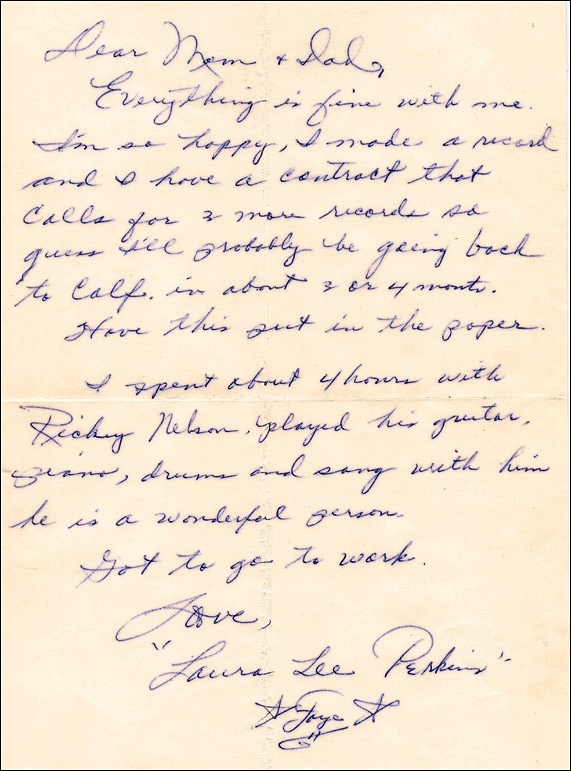 Dear Mom + Dad,
Everything is fine with me.
I'm so happy, I made a record
and I have a contract that
Calls for 3 more records so
guess I'll probably be going back
to Calf. in about 3 or 4 month.
Have this put in the paper.
I spent about 4 hours with
Rickey Nelson, played his guitar,
piano, drums and sang with him
he is a wonderful person.
Got to go to work.
Love,
"Laura Lee Perkins"
☆ Faye ☆